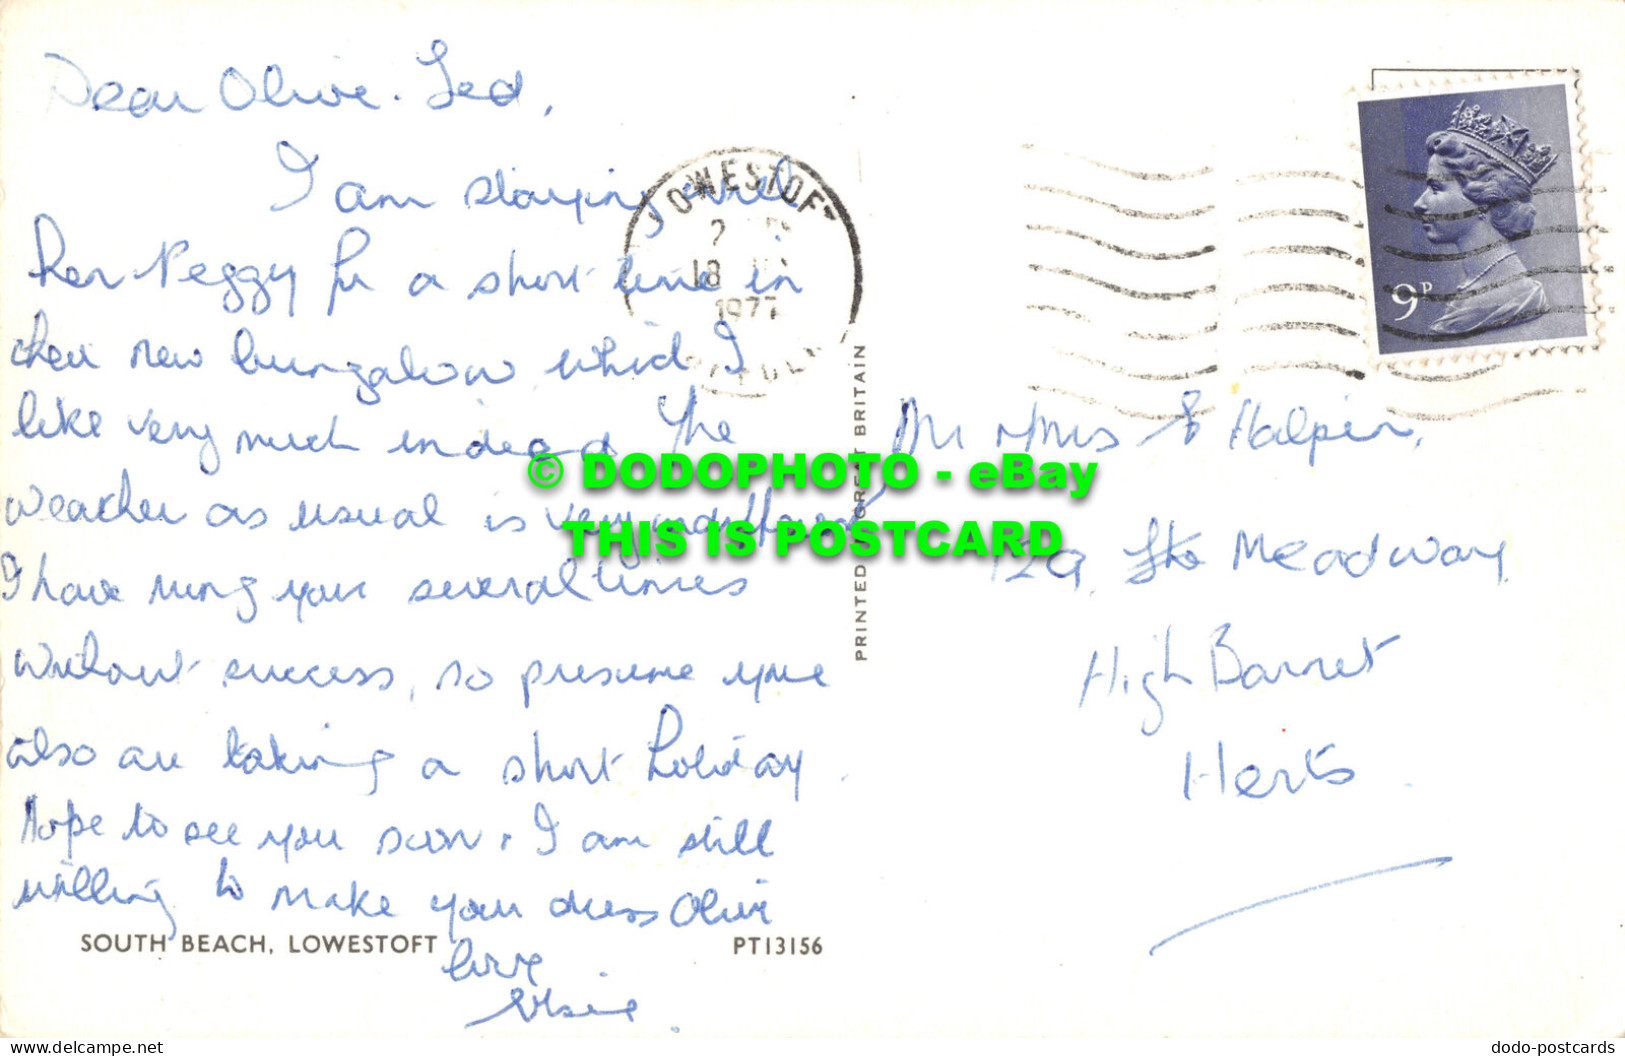 Dear Olive. Ted,
I am staying with
her Peggy for a short time in
their new bungalow which I
like very much indeed The
weather as usual is very
I have rung you several times
without success, so presume you
also are taking a short holiday.
Hope to see you soon. I am still
willing to make your dress Olive
love
Elsie.
SOUTH BEACH, LOWESTOFT
PT13156
LOWESTOFT
18
1977
PRINTED IN GREAT BRITAIN
9P
Mr & Mrs Halpin,
Meadway
High Barnet
Herts.
© DODOPHOTO - eBay
THIS IS POSTCARD
www.delcampe.net
dodo-postcards